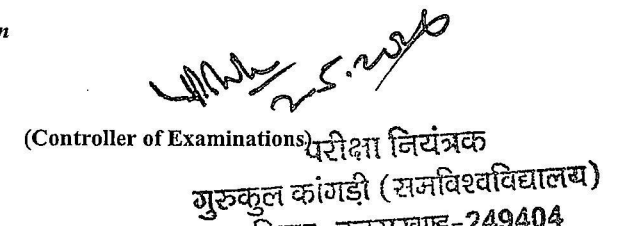 n
2.5.2026
(Controller of Examinations)
परीक्षा नियंत्रक
गुरुकुल कांगड़ी (समविश्वविद्यालय)
249404